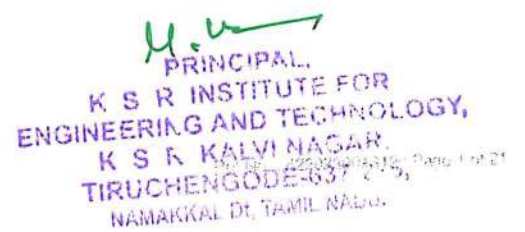 PRINCIPAL,
K S R INSTITUTE FOR
ENGINEERING AND TECHNOLOGY,
K S R KALVI NAGAR,
Page 1 of 21
TIRUCHENGODE-637
NAMAKKAL Dt, TAMIL NADU.